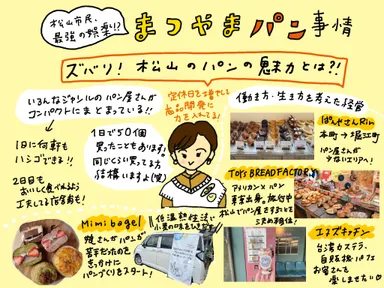 松山市民、
最強の娯楽!?
まつやまパン事情
ズバリ！松山のパンの魅力とは?!
いろんなジャンルのパン屋さんが
コンパクトにまとまっている!!
1日に何軒も
ハシゴできる!!
2日目も
おいしく食べれるよう
工夫してる店舗も!
定休日を増やして
商品開発に
力を入れてる!
1日で50個
買ったこともあります!
同じくらい買ってる方
結構いますよ(笑)
働き方・生き方を考えた経営
ぱんやさんRin
本町→堀江町
パン屋さんが
少ないエリアへ!
TOYS BREAD FACTORY
アメリカン×パン
東京出身。旅行中
松山でパン屋さするとして
Mimi bagel
焼き
パンが
苦手だったのを
きっかけに
パンづくりをスタート!
低温熟性法で
小麦の味をひきだす
エヌズキッチン
台湾カステラ、
自販機パフェ
お客さんを
楽しませたい